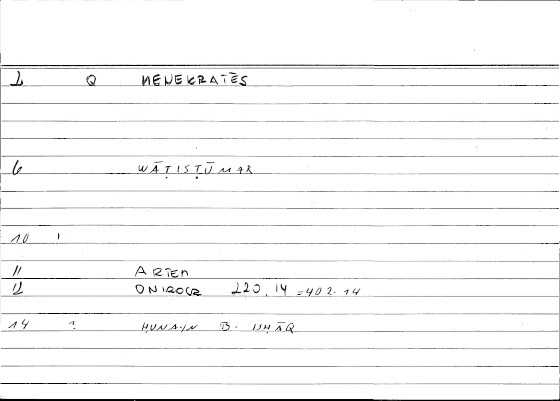 1 Q MENEKRATĒS
6 WĀṬISṬŪMAR
10 !
11 ARTEM
12 ONIROCR 220, 14 = 402. 14
14 ? ḤUNAYN B. ISḤĀQ